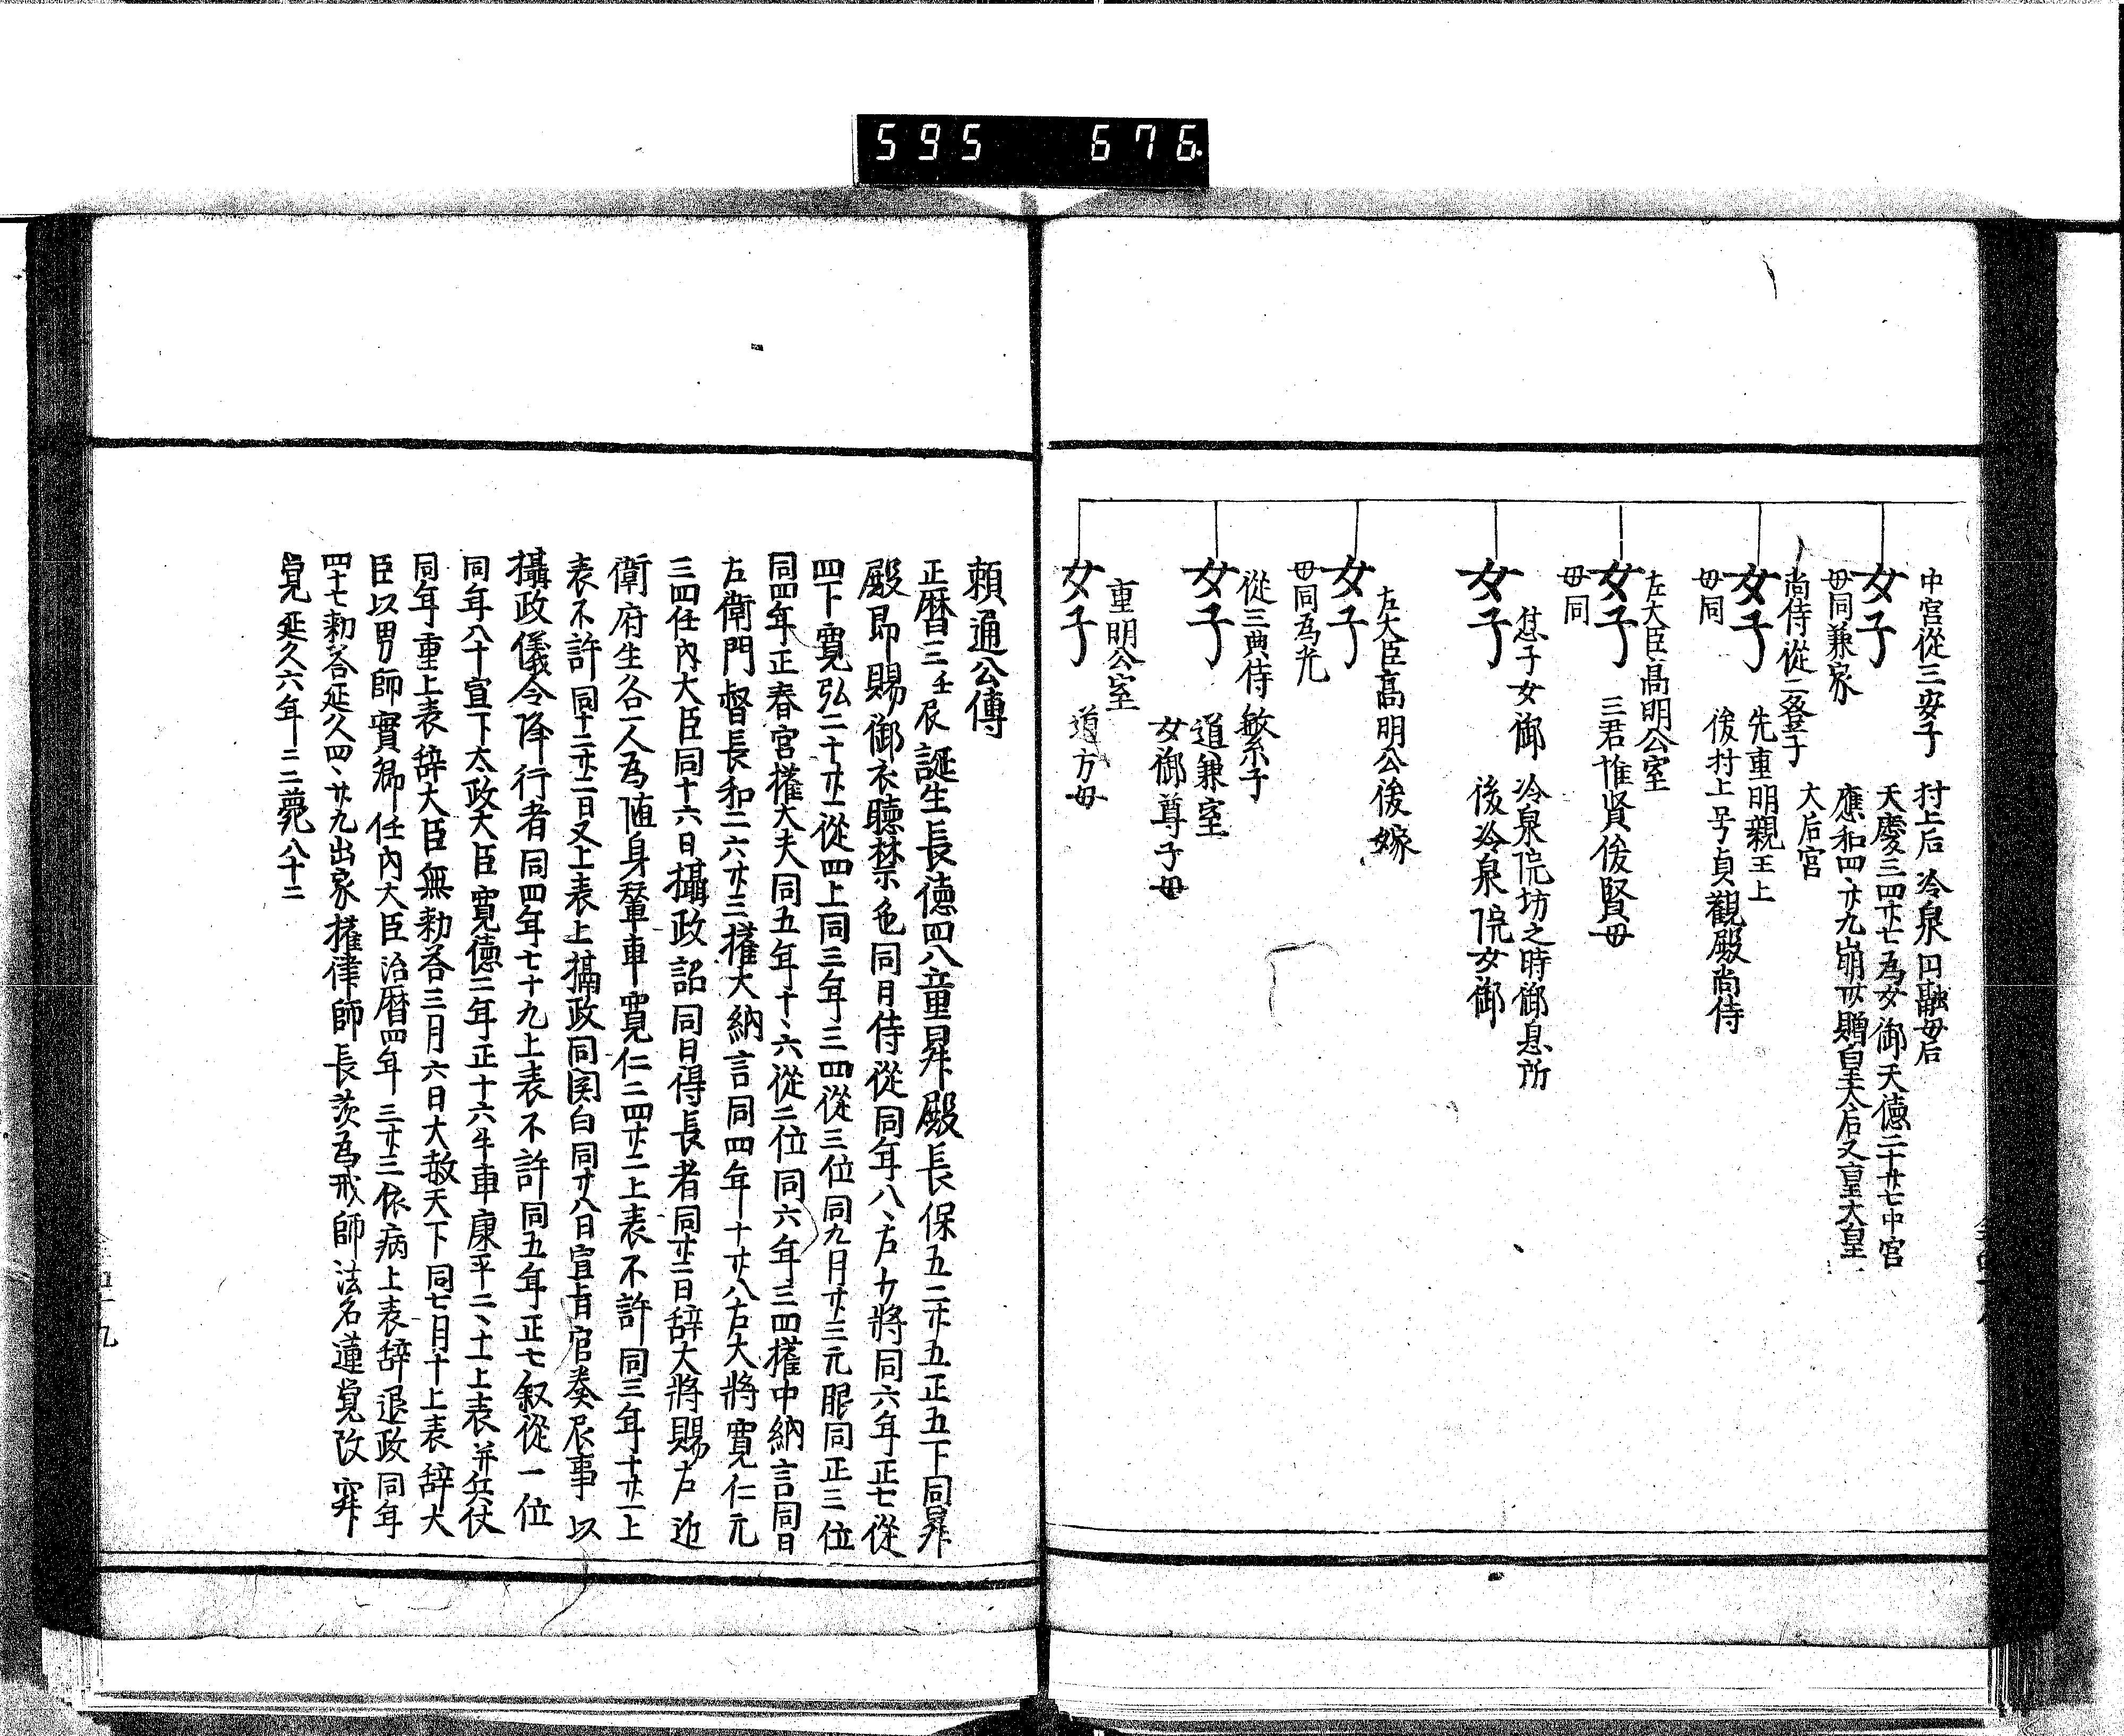 595 676
中宮從三安子
村上后 冷泉円融母后
女子
天慶三四廿七為女御天德二十廿七中宮
母同兼家
應和四廿九崩 贈皇太后又皇太皇
大后宮
尚侍從二登子
女子
先重明親王上
母同
後村上号貞觀殿尚侍
左大臣高明公室
女子
三君惟賢俊賢母
母同
女御 冷泉院坊之時御息所
女子
後冷泉院女御
左大臣高明公後嫁
女子
母同為光
從三典侍繁子
女子
道兼室
女御尊子母
重明公室
女子
道方母
頼通公傳
正暦三壬辰誕生長德四八童昇殿長保五二廿五正五下同昇
殿即賜御衣聴禁色同月侍從同年八、右少將同六年正七從
四下寛弘二十廿二從四上同三年三四從三位同九月廿三元服同正三位
同四年正春宮權大夫同五年十、六從二位同六年三四權中納言同日
左衛門督長和二六廿三權大納言同四年十廿八右大將寛仁元
三四任内大臣同十六日攝政詔同日得長者同廿二日辞大將賜左近
衛府生各一人為随身輦車寛仁二四廿二上表不許同三年十廿二上
表不許同十二廿二日又上表上攝政同関白同廿八日宣旨官奏辰事以
攝政儀令降行者同四年七十九上表不許同五年正七叙從一位
同年八十宣下太政大臣寛德二年正十六牛車康平二、十一上表并兵仗
同年重上表辞大臣無勅答三月六日大赦天下同七月十上表辞大
臣以男師實卿任内大臣治暦四年三廿三依病上表辞退政同年
四十七勅答延久四、廿九出家權律師長茨為戒師法名蓮覚改寂
覚延久六年二二薨八十二